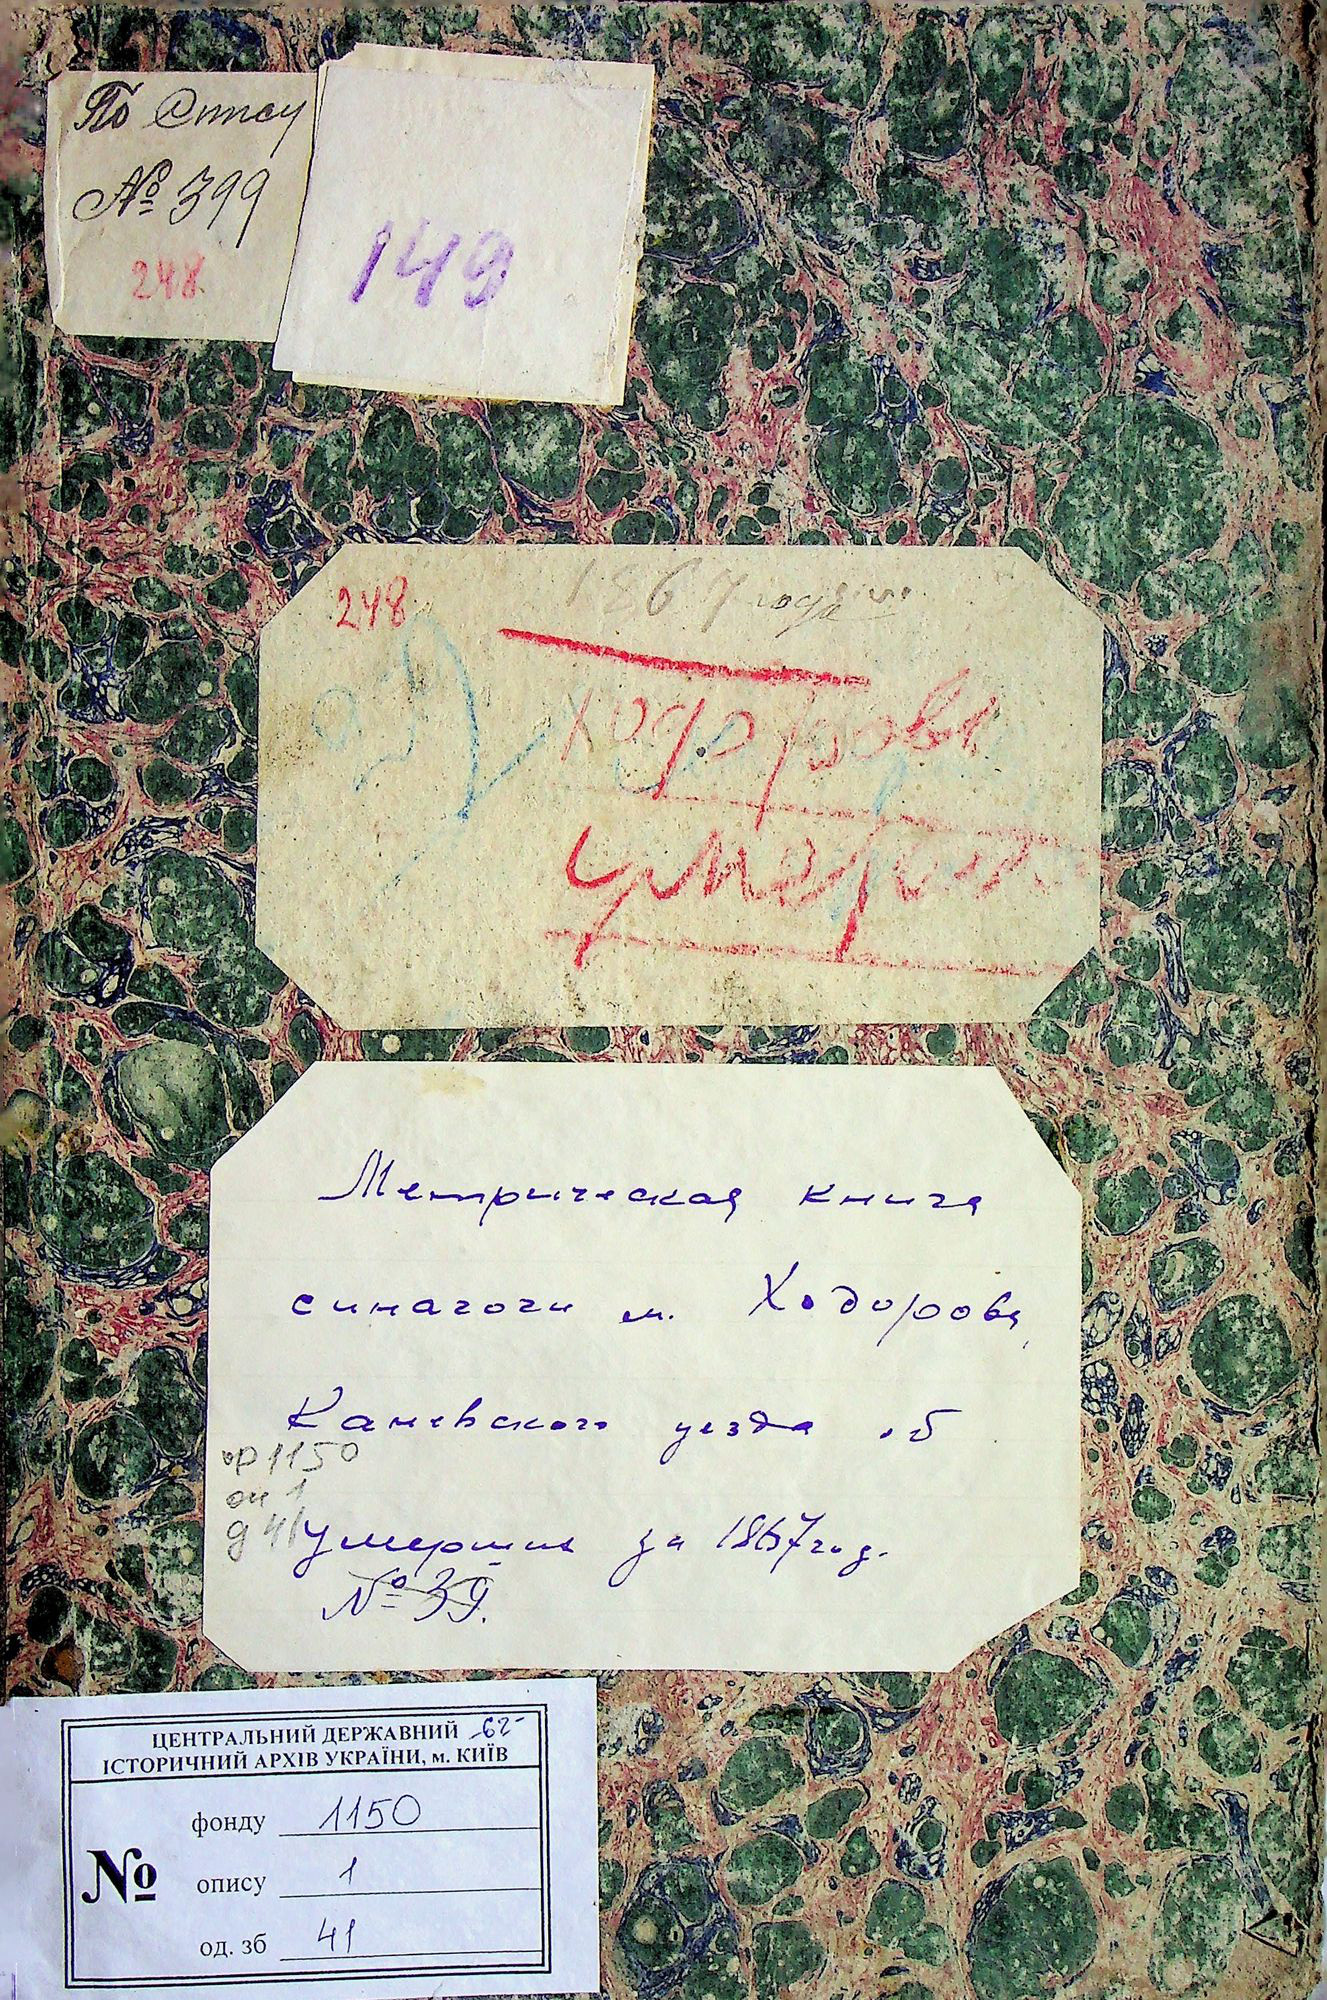 По Опису
№ 399
248
149
248
1867 года
Ходоров
умерш
Метрическая книга
синагоги м. Ходорова,
Каневского уезда об
умерших за 1867 год.
№ 39.
ф 1150
оп 1
д 41
ЦЕНТРАЛЬНИЙ ДЕРЖАВНИЙ
ІСТОРИЧНИЙ АРХІВ УКРАЇНИ, м. КИЇВ
№
фонду 1150
опису 1
од. зб 41